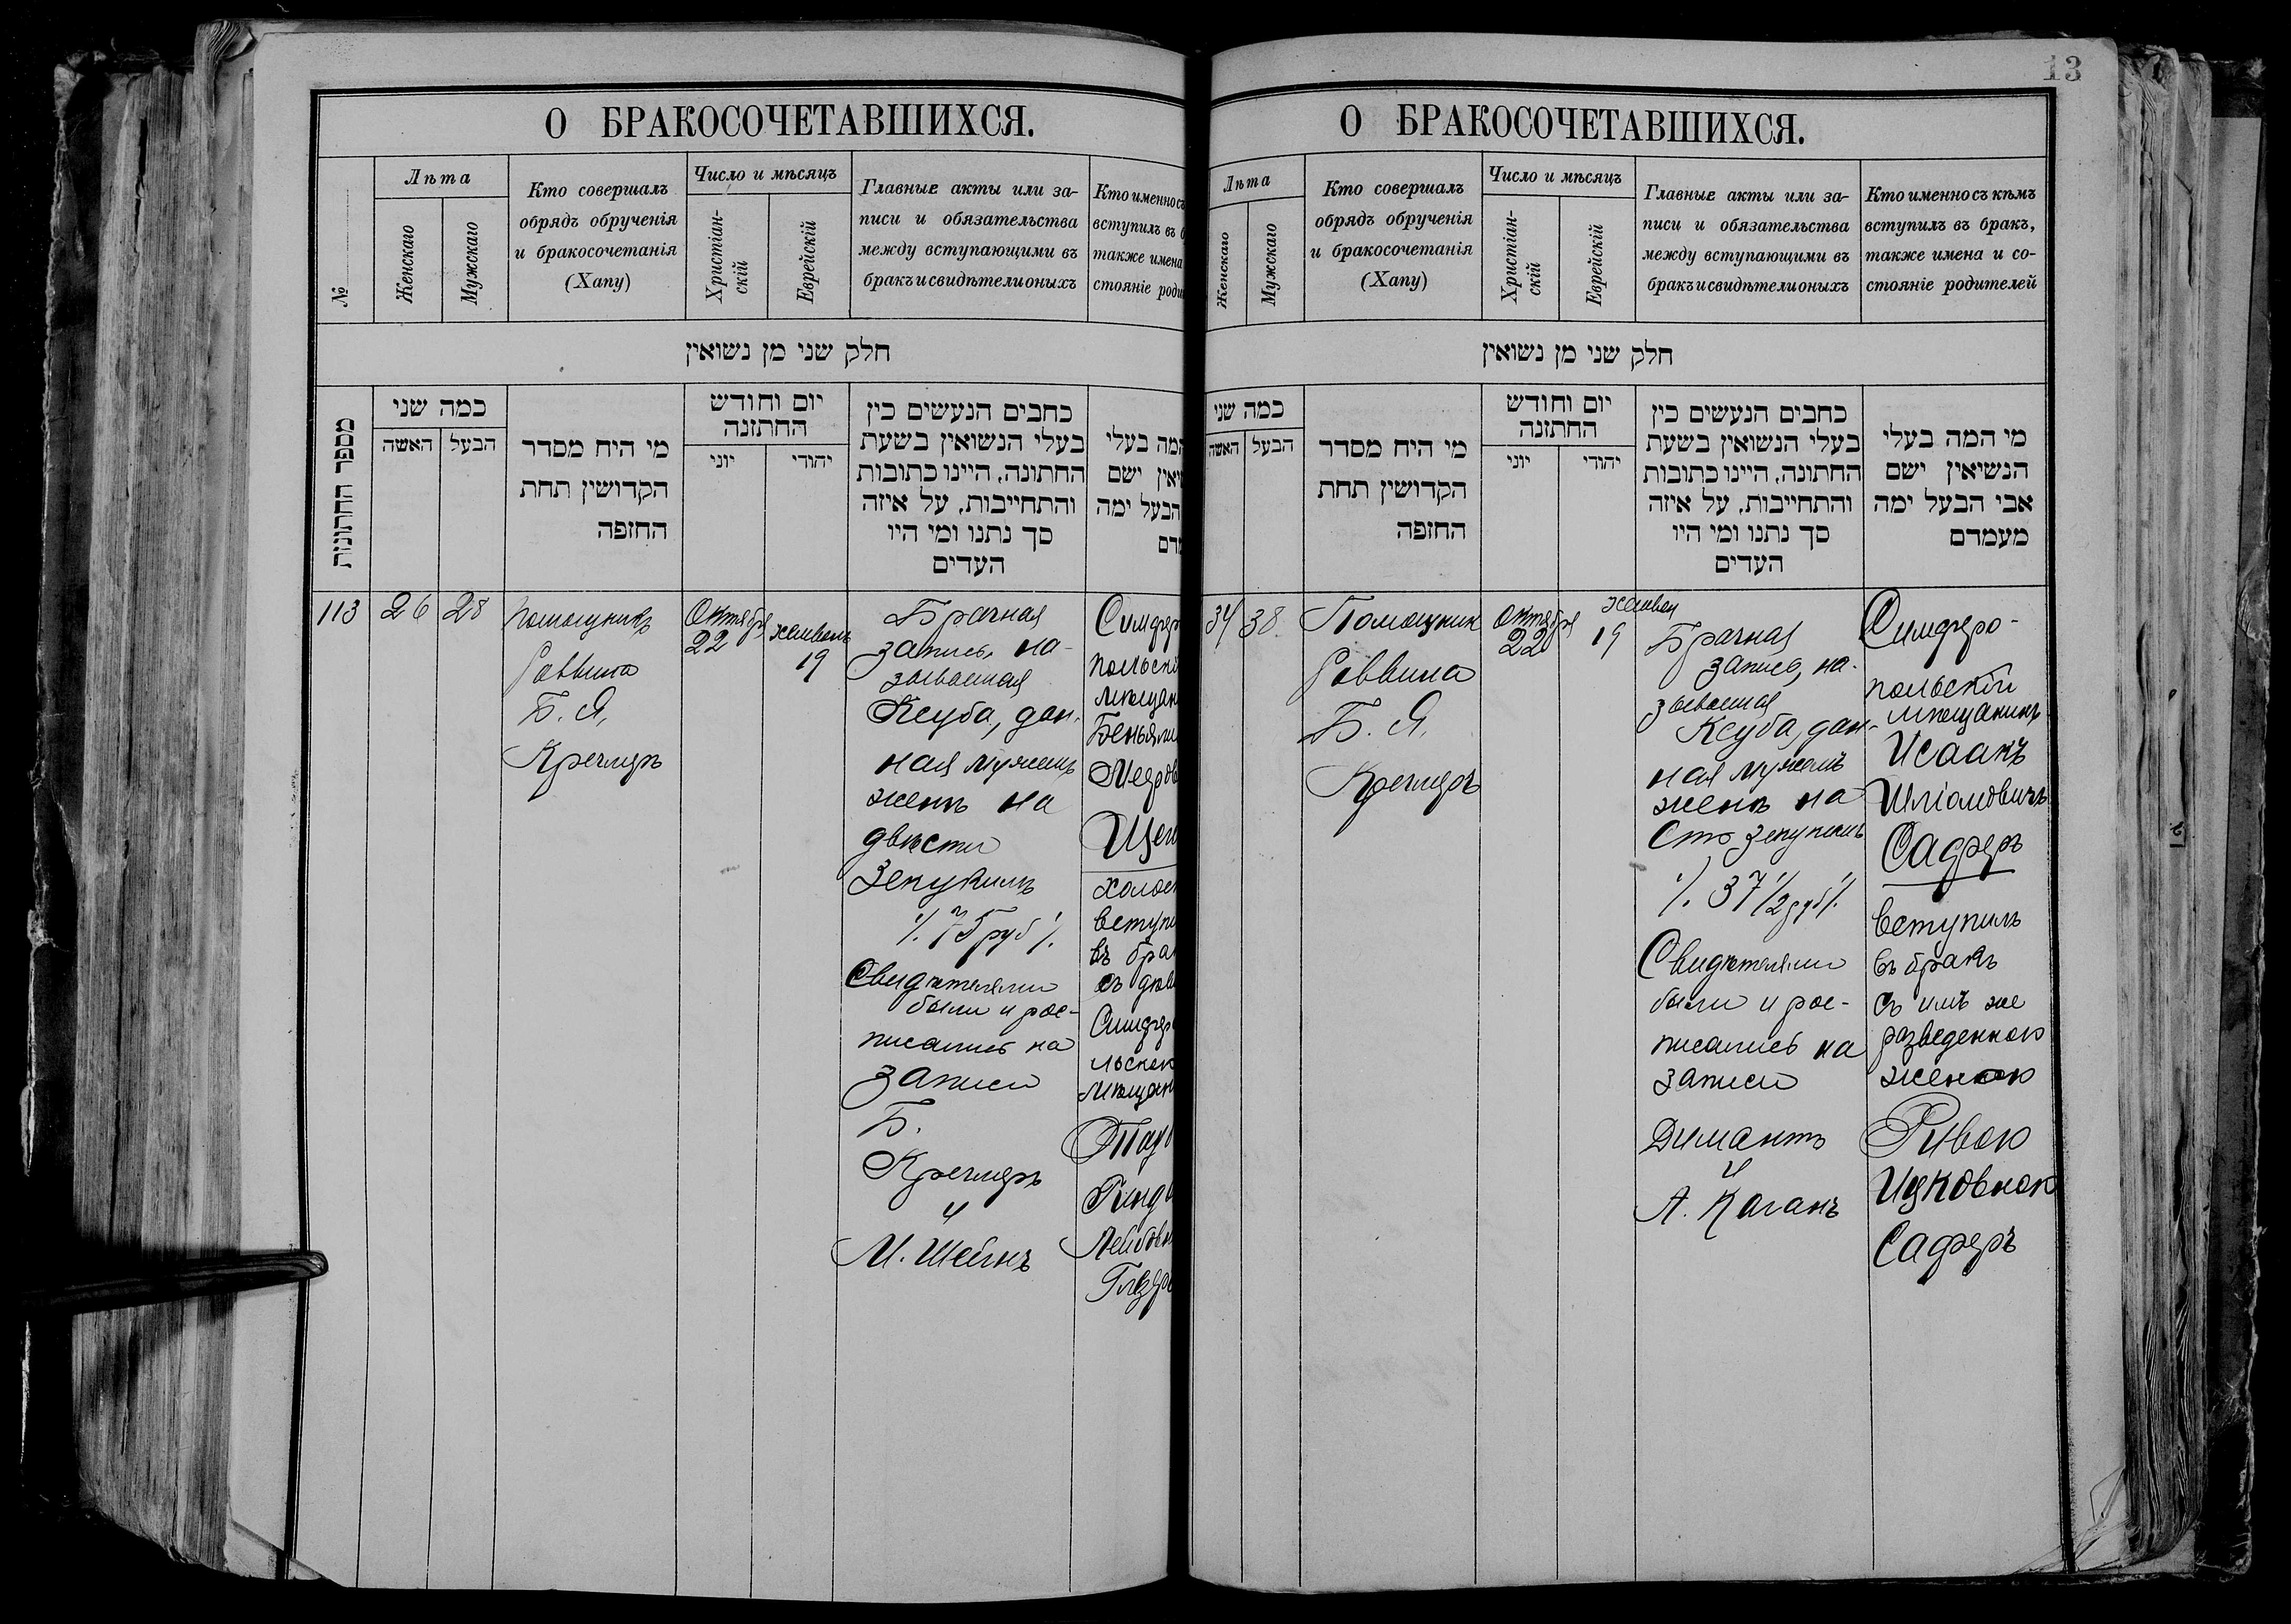 О БРАКОСОЧЕТАВШИХСЯ.
№
Лѣта
Женскаго
Мужскаго
Кто совершалъ
обрядъ обрученія
и бракосочетанія
(Хапу)
Число и мѣсяцъ
Христіан-
скій
Еврейскій
Главные акты или за-
писи и обязательства
между вступающими въ
бракъ и свидѣтели оныхъ
Кто именно съ
вступилъ въ
также имена
стояніе
חלק שני מן נשואין
מספר החתונות
כמה שני
האשה
הבעל
מי היח מסדר
הקדושין תחת
החזפה
יום וחודש
החתזנה
יוני
יהודי
כחבים הנעשים כין
בעלי הנשואין בשעת
החתונה, היינו כתובות
והתחייבות, על איזה
סך נתנו ומי היו
העדים
המה בעלי
ישם
הבעל ימה
113
26
28
Помощникъ
Раввина
Б. Я.
Кречмеръ
Октября
22
Хешванъ
19
Брачная
запись, на-
зываемая
Ксуба, дан-
ная мужемъ
женѣ на
двѣсти
Зекукимъ
./. 75 руб ./.
Свидѣтелями
были и рос-
писались на
записи
Б.
Кречмеръ
и
М. Шейнъ
Симфер
польскі
мѣщан
Беньями
Мееров
Щег
холос
вступи
въ бра
съ дѣв
Симфер
льскою
мѣщан
Лейбовн
13
О БРАКОСОЧЕТАВШИХСЯ.
Лѣта
Женскаго
Мужскаго
Кто совершалъ
обрядъ обрученія
и бракосочетанія
(Хапу)
Число и мѣсяцъ
Христіан-
скій
Еврейскій
Главные акты или за-
писи и обязательства
между вступающими въ
бракъ и свидѣтели оныхъ
Кто именно съ кѣмъ
вступилъ въ бракъ,
также имена и со-
стояніе родителей
חלק שני מן נשואין
כמה שני
האשה
הבעל
מי היח מסדר
הקדושין תחת
החזפה
יום וחודש
החתזנה
יוני
יהודי
כחבים הנעשים כין
בעלי הנשואין בשעת
החתונה, היינו כתובות
והתחייבות, על איזה
סך נתנו ומי היו
העדים
מי המה בעלי
הנשיאין ישם
אבי הבעל ימה
מעמדם
34
38
Помощник
Раввина
Б. Я.
Кречмеръ
Октября
22
Хешван
19
Брачная
запись, на-
зываемая
Ксуба, дан-
ная мужемъ
женѣ на
Сто зекукимъ
./. 37 1/2 руб ./.
Свидѣтелями
были и рос-
писались на
записи
Димантъ
и
А. Каганъ
Симферо-
польскій
мѣщанинъ
Исаакъ
Шліомовичъ
Саферъ
вступилъ
въ бракъ
съ имъ же
разведенною
женою
Ривою
Ицковною
Саферъ